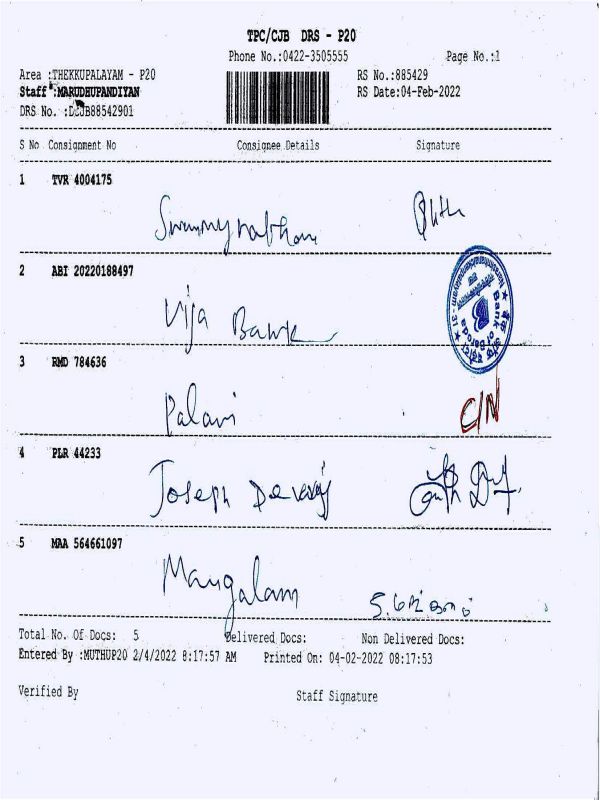 TPC/CJB DRS - P20
Phone No.:0422-3505555 Page No.:1
Area :THEKKUPALAYAM - P20 RS No.:885429
Staff :MARUDHUPANDIYAN RS Date:04-Feb-2022
DRS No. :DCJB88542901
S No Consignment No Consignee Details Signature
1 TVR 4004175
2 ABI 20220188497
Vija Bank
Bank of Baroda
3 RMD 784636
Palani C/N
4 PLR 44233
Joseph Devaraj
5 MAA 564661097
Mangalam
Total No. Of Docs: 5 Delivered Docs: Non Delivered Docs:
Entered By :MUTHUP20 2/4/2022 8:17:57 AM Printed On: 04-02-2022 08:17:53
Verified By Staff Signature